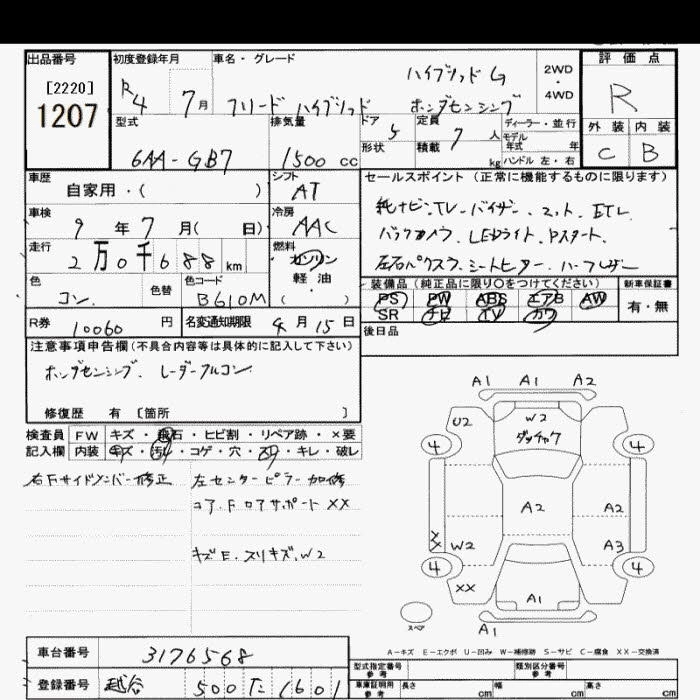 出品番号
[2220]
1207
初度登録年月
R4 7月
車名・グレード
フリード ハイブリッド
ハイブリッド G
ホンダセンシング
2WD
・
4WD
評価点
R
外装 内装
C B
型式
6AA-GB7
排気量
1500 cc
ドア 5
形状
定員 7 人
積載 kg
ディーラー・並行
モデル年式 年
ハンドル 左・右
車歴
自家用・( )
シフト
AT
車検
9 年 7 月( 日)
冷房
AAC
走行
2万0千688 km
燃料
ガソリン
軽油
( )
色
コン
色替
色コード
B610M
R券 10060 円
名変通知期限 4月15日
セールスポイント(正常に機能するものに限ります)
純ナビ.TV.バイザー.マット.ETC.
バックカメラ.LEDライト.Pスタート.
左右パワスラ.シートヒーター.ハーフレザー
装備品(純正品に限り○をつけてください)
新車保証書
PS PW ABS エアB AW
SR ナビ TV カワ
有・無
後日品
注意事項申告欄(不具合内容等は具体的に記入して下さい)
ホンダセンシング.レーダークルコン
修復歴 有 [箇所 ]
検査員記入欄
FW キズ・飛石・ヒビ割・リペア跡・×要
内装 キズ・汚れ・コゲ・穴・スリ・キレ・破レ
右Fサイドメンバー修正
左センターピラー加修
コア.FロアサポートXX
キズE.スリキズ.W2
A1 A1 A2
U2 W2
ダッチャク
4 4
A2 A2
XX W2 A3
4 4
XX
A1
スペア
A1
A-キズ E-エクボ U-凹み W-補修跡 S-サビ C-腐食 XX-交換済
車台番号 3176568
登録番号 越谷 500 た 1601
型式指定番号 参考
類別区分番号 参考
車庫証明用 参考
長さ cm 幅 cm 高さ cm